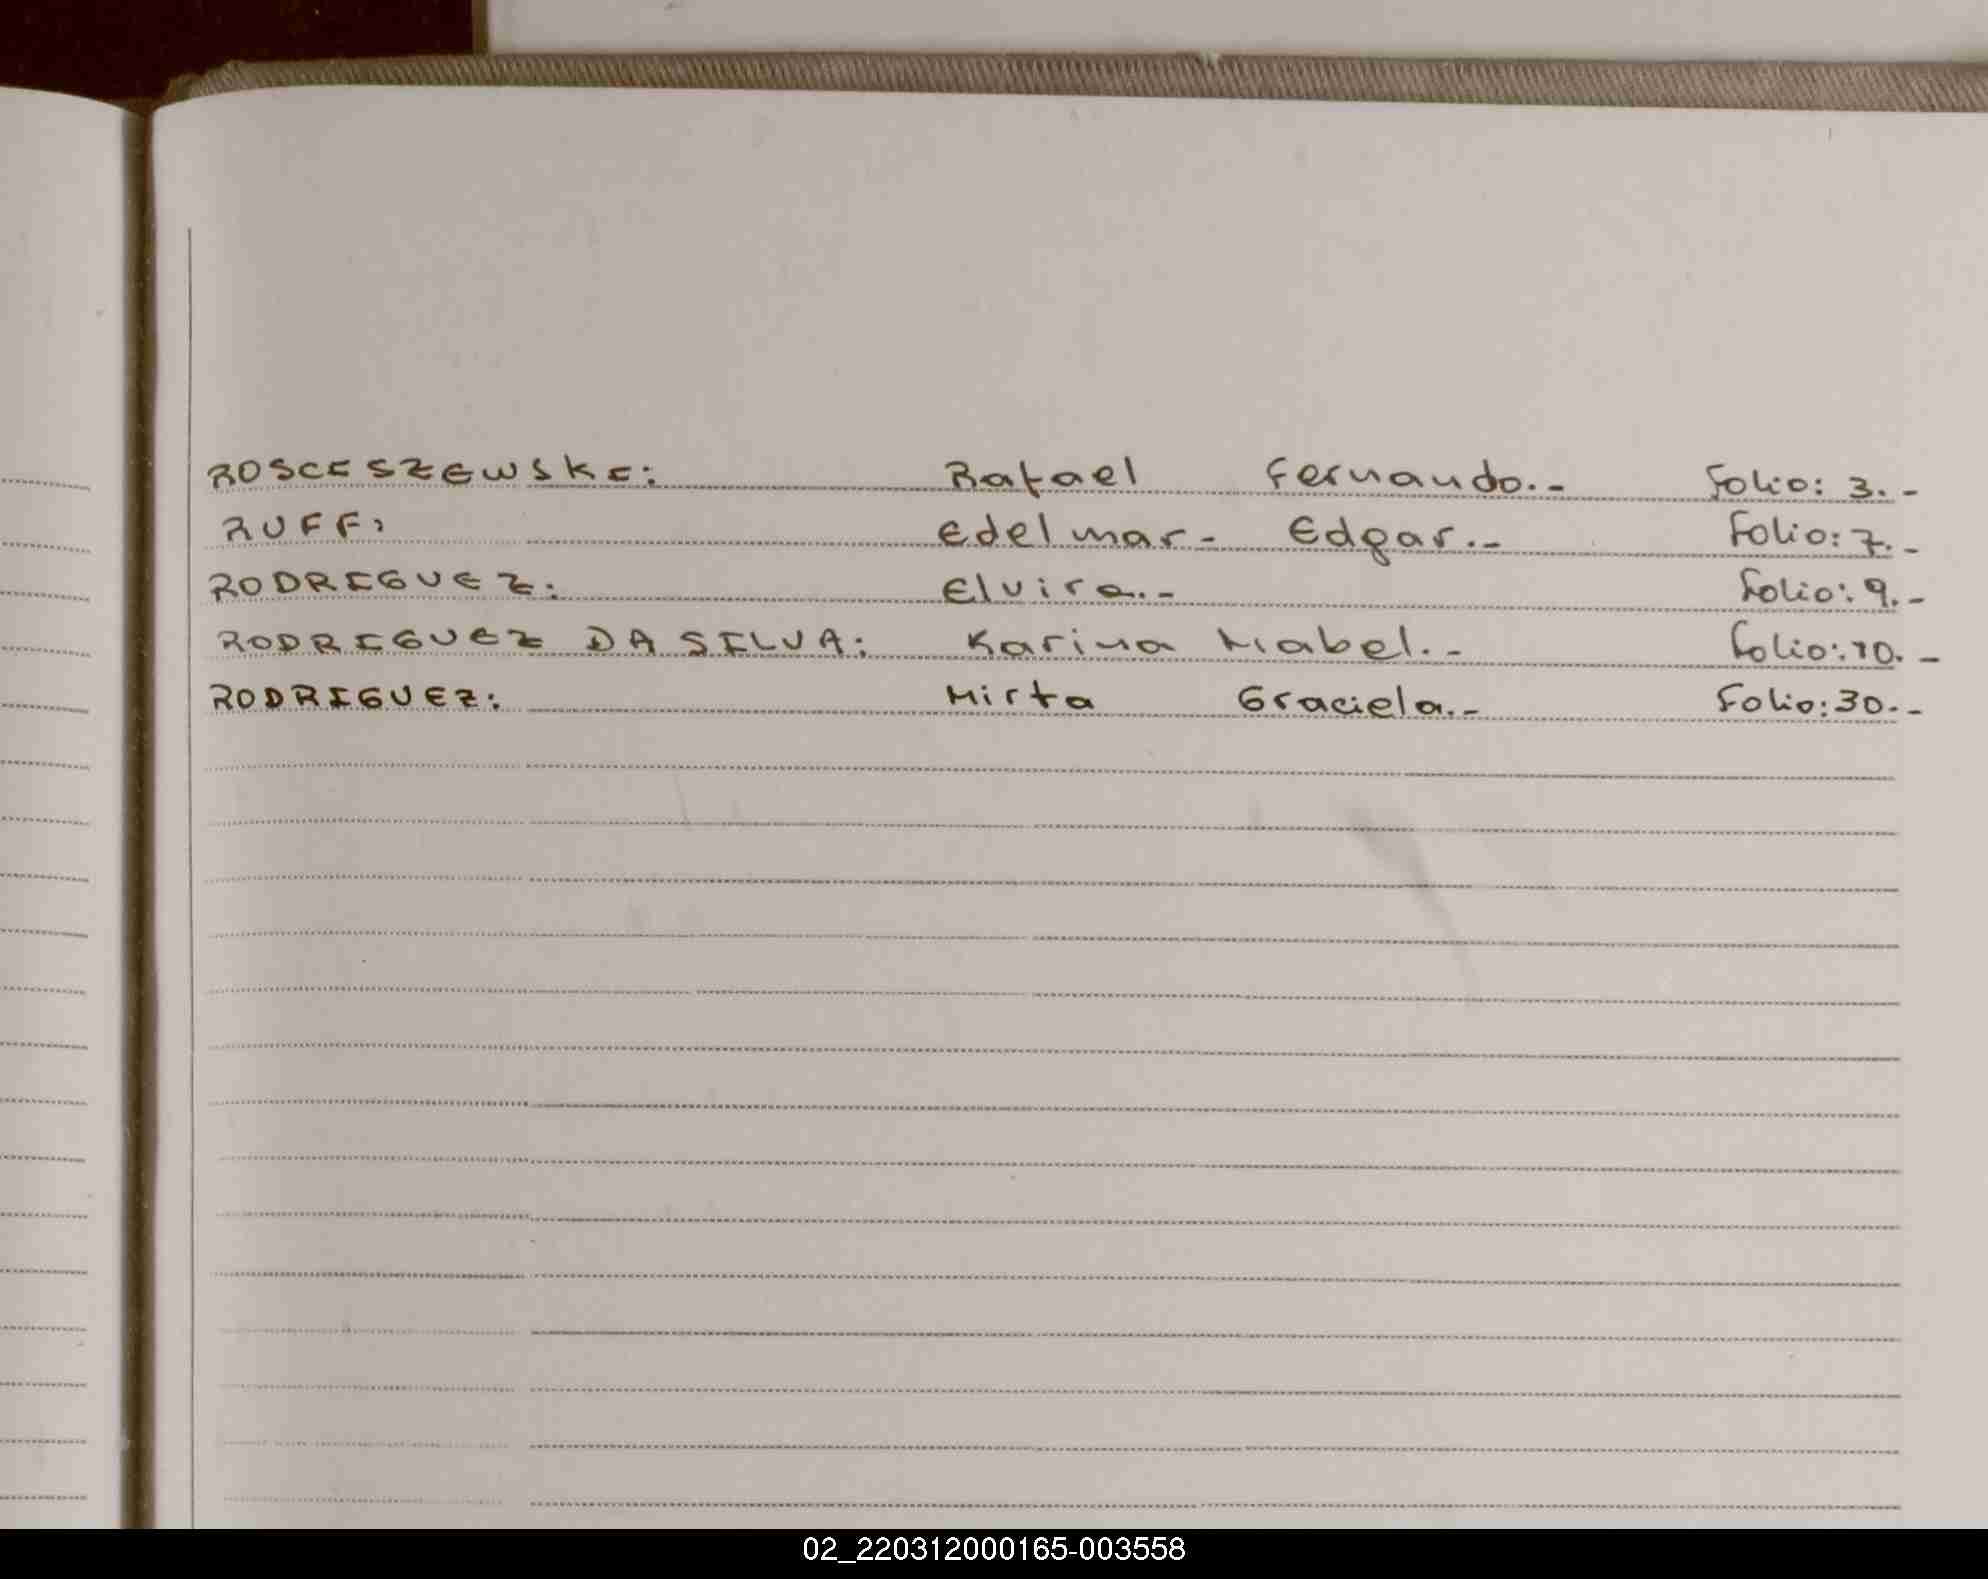 ROSCISZEWSKI: Rafael Fernando.- Folio: 3.-
RUFF: Edelmar- Edgar.- Folio: 7.-
RODRIGUEZ: Elvira.- Folio: 9.-
RODRIGUEZ DA SILVA: Karina Mabel.- Folio: 10.-
RODRIGUEZ: Mirta Graciela.- Folio: 30.-
02_220312000165-003558